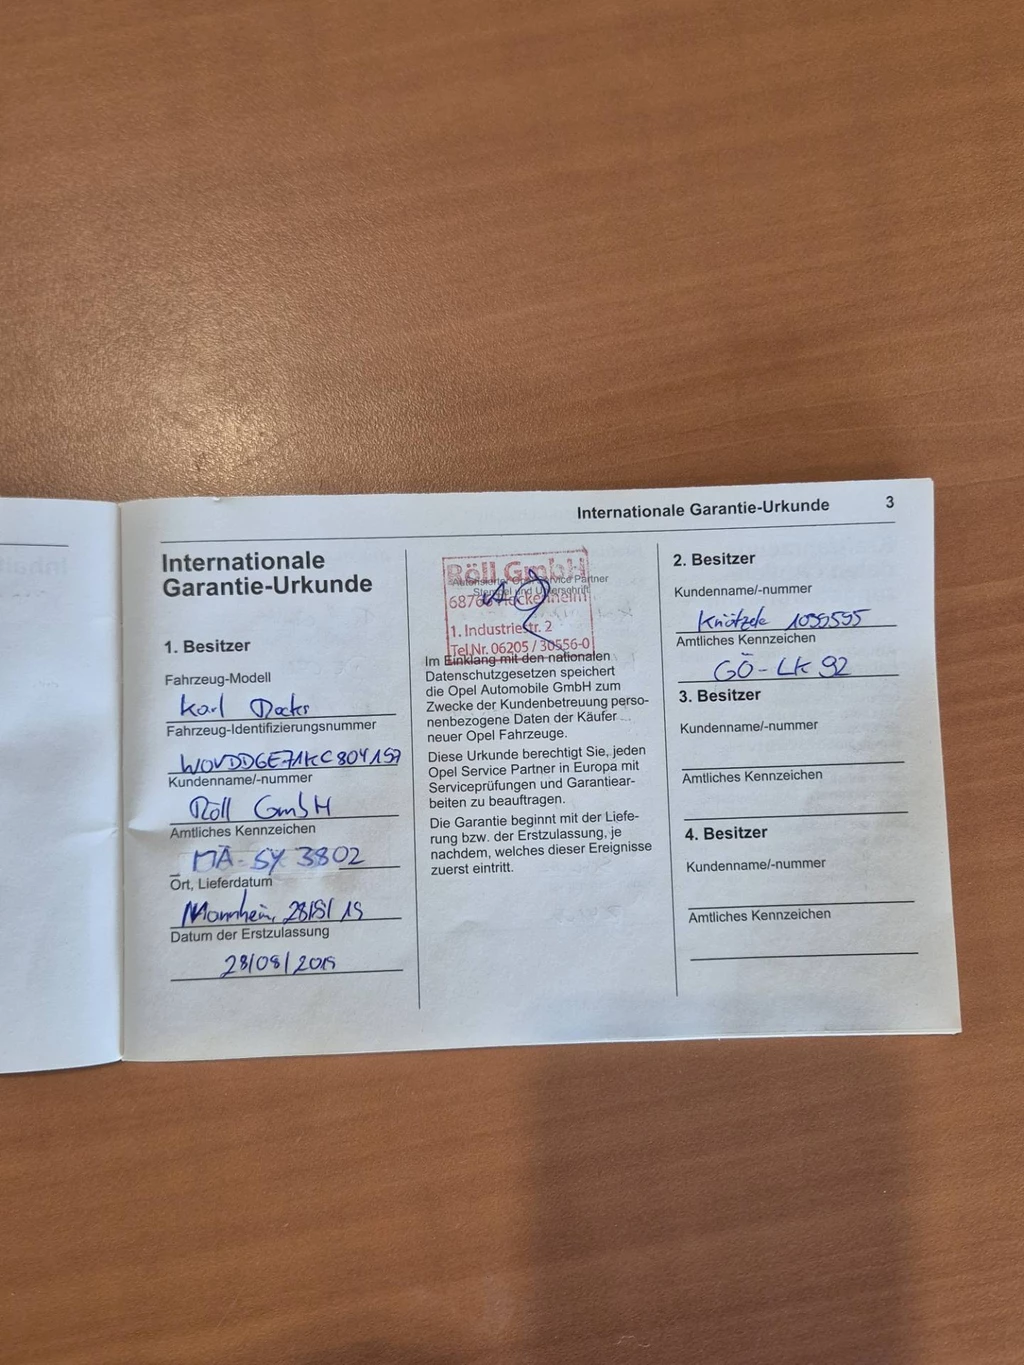 Internationale Garantie-Urkunde 3
Internationale
Garantie-Urkunde
1. Besitzer
Fahrzeug-Modell
Karl
Fahrzeug-Identifizierungsnummer
W0VDDGE71KC804157
Kundenname/-nummer
Röll GmbH
Amtliches Kennzeichen
MA-SY 3802
Ort, Lieferdatum
Mannheim, 28/8/19
Datum der Erstzulassung
28/08/2019
Röll GmbH
Autorisierter Opel Service Partner
Stempel und Unterschrift
68766 Hockenheim
1. Industriestr. 2
Tel.Nr. 06205 / 30556-0
Im Einklang mit den nationalen
Datenschutzgesetzen speichert
die Opel Automobile GmbH zum
Zwecke der Kundenbetreuung perso-
nenbezogene Daten der Käufer
neuer Opel Fahrzeuge.
Diese Urkunde berechtigt Sie, jeden
Opel Service Partner in Europa mit
Serviceprüfungen und Garantiear-
beiten zu beauftragen.
Die Garantie beginnt mit der Liefe-
rung bzw. der Erstzulassung, je
nachdem, welches dieser Ereignisse
zuerst eintritt.
2. Besitzer
Kundenname/-nummer
Amtliches Kennzeichen
GÖ-LK 92
3. Besitzer
Kundenname/-nummer
Amtliches Kennzeichen
4. Besitzer
Kundenname/-nummer
Amtliches Kennzeichen